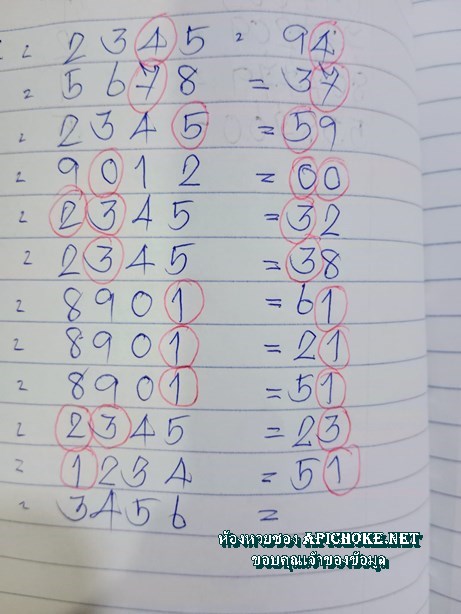 = 2 3 4 5 = 94
= 5 6 7 8 = 37
= 2 3 4 5 = 59
= 9 0 1 2 = 00
= 2 3 4 5 = 32
= 2 3 4 5 = 38
= 8 9 0 1 = 61
= 8 9 0 1 = 21
= 8 9 0 1 = 51
= 2 3 4 5 = 23
= 1 2 3 4 = 51
= 3 4 5 6 =
ห้องหวยซอง APICHOKE.NET
ขอบคุณเจ้าของข้อมูล